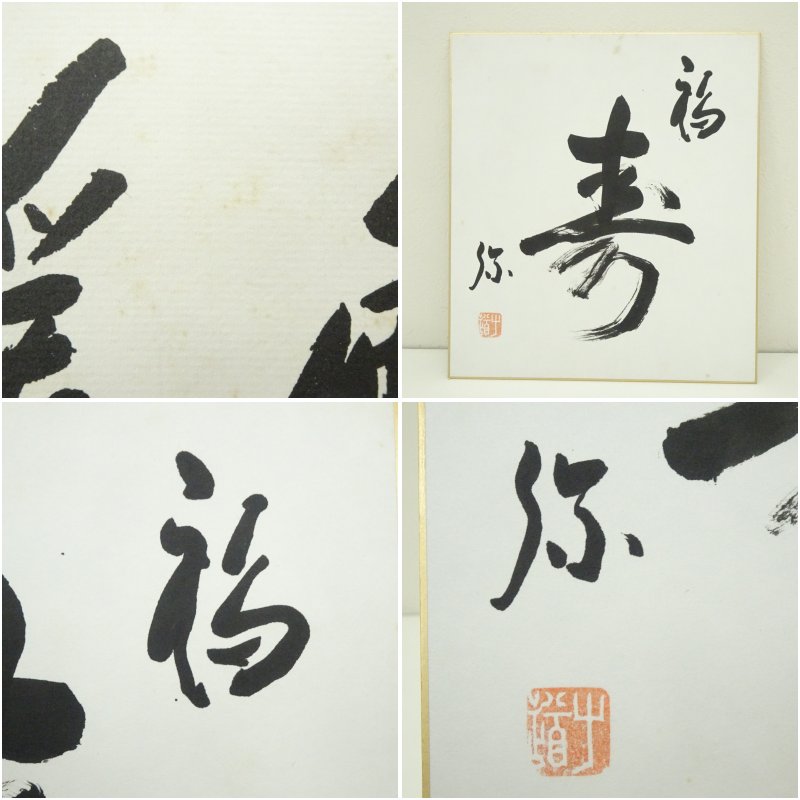 福
寿
弥
福
弥